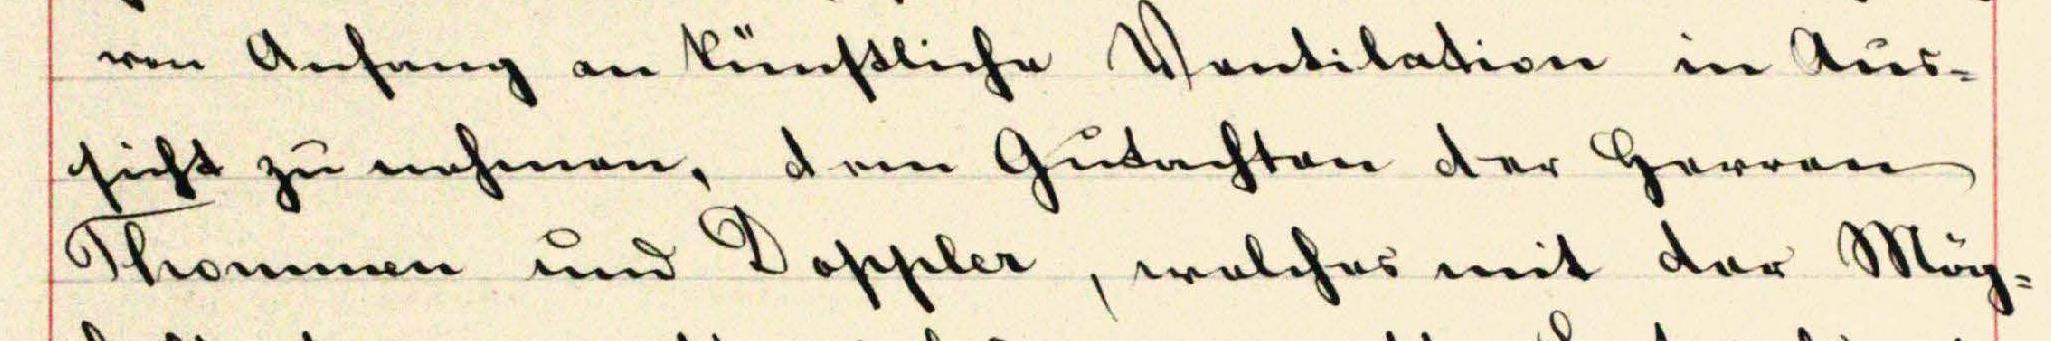 von Anfang an künstliche Ventilation in Aus-
sicht zu nehmen, dem Gutachten der Herren
Thommen und Doppler, welches mit der Mög-